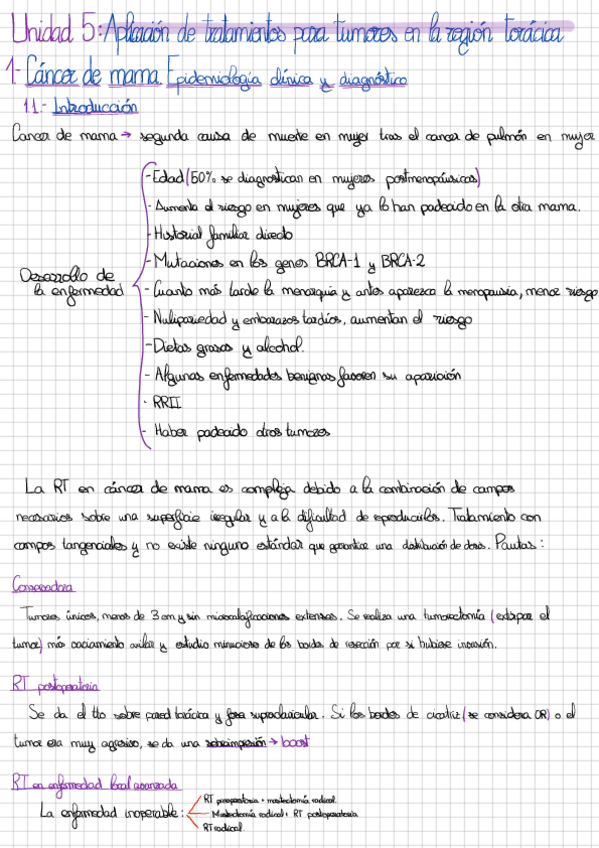 Unidad 5: Aplicación de tratamientos para tumores en la región torácica
1- Cáncer de mama. Epidemiología clínica y diagnóstico
1.1.- Introducción
Cancer de mama → segunda causa de muerte en mujer tras el cancer de pulmón en mujer
-Edad (50% se diagnostican en mujeres postmenopáusicas)
- Aumenta el riesgo en mujeres que ya lo han padecido en la otra mama.
- Historial familiar directo
- Mutaciones en los genes BRCA-1 y BRCA-2
Desarrollo de
la enfermedad
- Cuanto más tarde la menarquia y antes aparezca la menopausia, menor riesgo
- Nulipariedad y embarazos tardíos, aumentan el riesgo
- Dietas grasas y alcohol.
- Algunas enfermedades benignas favorecen su aparición
- RRII
- Haber padecido otros tumores
La RT en cáncer de mama es compleja debido a la combinación de campos
necesarios sobre una superficie irregular y a la dificultad de reproducirlos. Tratamiento con
campos tangenciales y no existe ninguno estándar que garantice una distribución de dosis. Pautas:
Conservadora
Tumores únicos, menos de 3 cm y sin microcalcificaciones extensas. Se realiza una tumorectomía (extirpar el
tumor) más vaciamiento axilar y estudio minucioso de los bordes de resección por si hubiese invasión.
RT postoperatoria
Se da el tto sobre pared torácica y fosa supraclavicular. Si los bordes de cicatriz (se considera OR) o el
tumor era muy agresivo, se da una sobreimpresión → boost
RT en enfermedad local avanzada
La enfermedad inoperable:
RT preoperatoria + mastectomía radical.
Mastectomía radical + RT postoperatoria
RT radical.